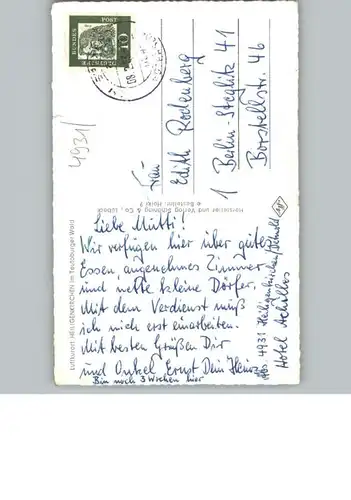 Liebe Mutti!
Wir verfügen hier über gutes
Essen, angenehmes Zimmer
und nette kleine Dörfer.
Mit dem Verdienst muß
ich mich erst einarbeiten.
Mit besten Grüßen Dir
und Onkel Ernst Dein Heinz
Bin noch 3 Wochen hier
4931 Heiligenkirchen/Detmold
Hotel Achilles
Frau
Edith Rodenberg
1 Berlin-Steglitz 41
Borstellstr. 46
DEUTSCHE
BUNDES
POST
10
4931/
Luftkurort HEILIGENKIRCHEN im Teutoburger Wald
Hersteller und Verlag Schöning & Co., Lübeck